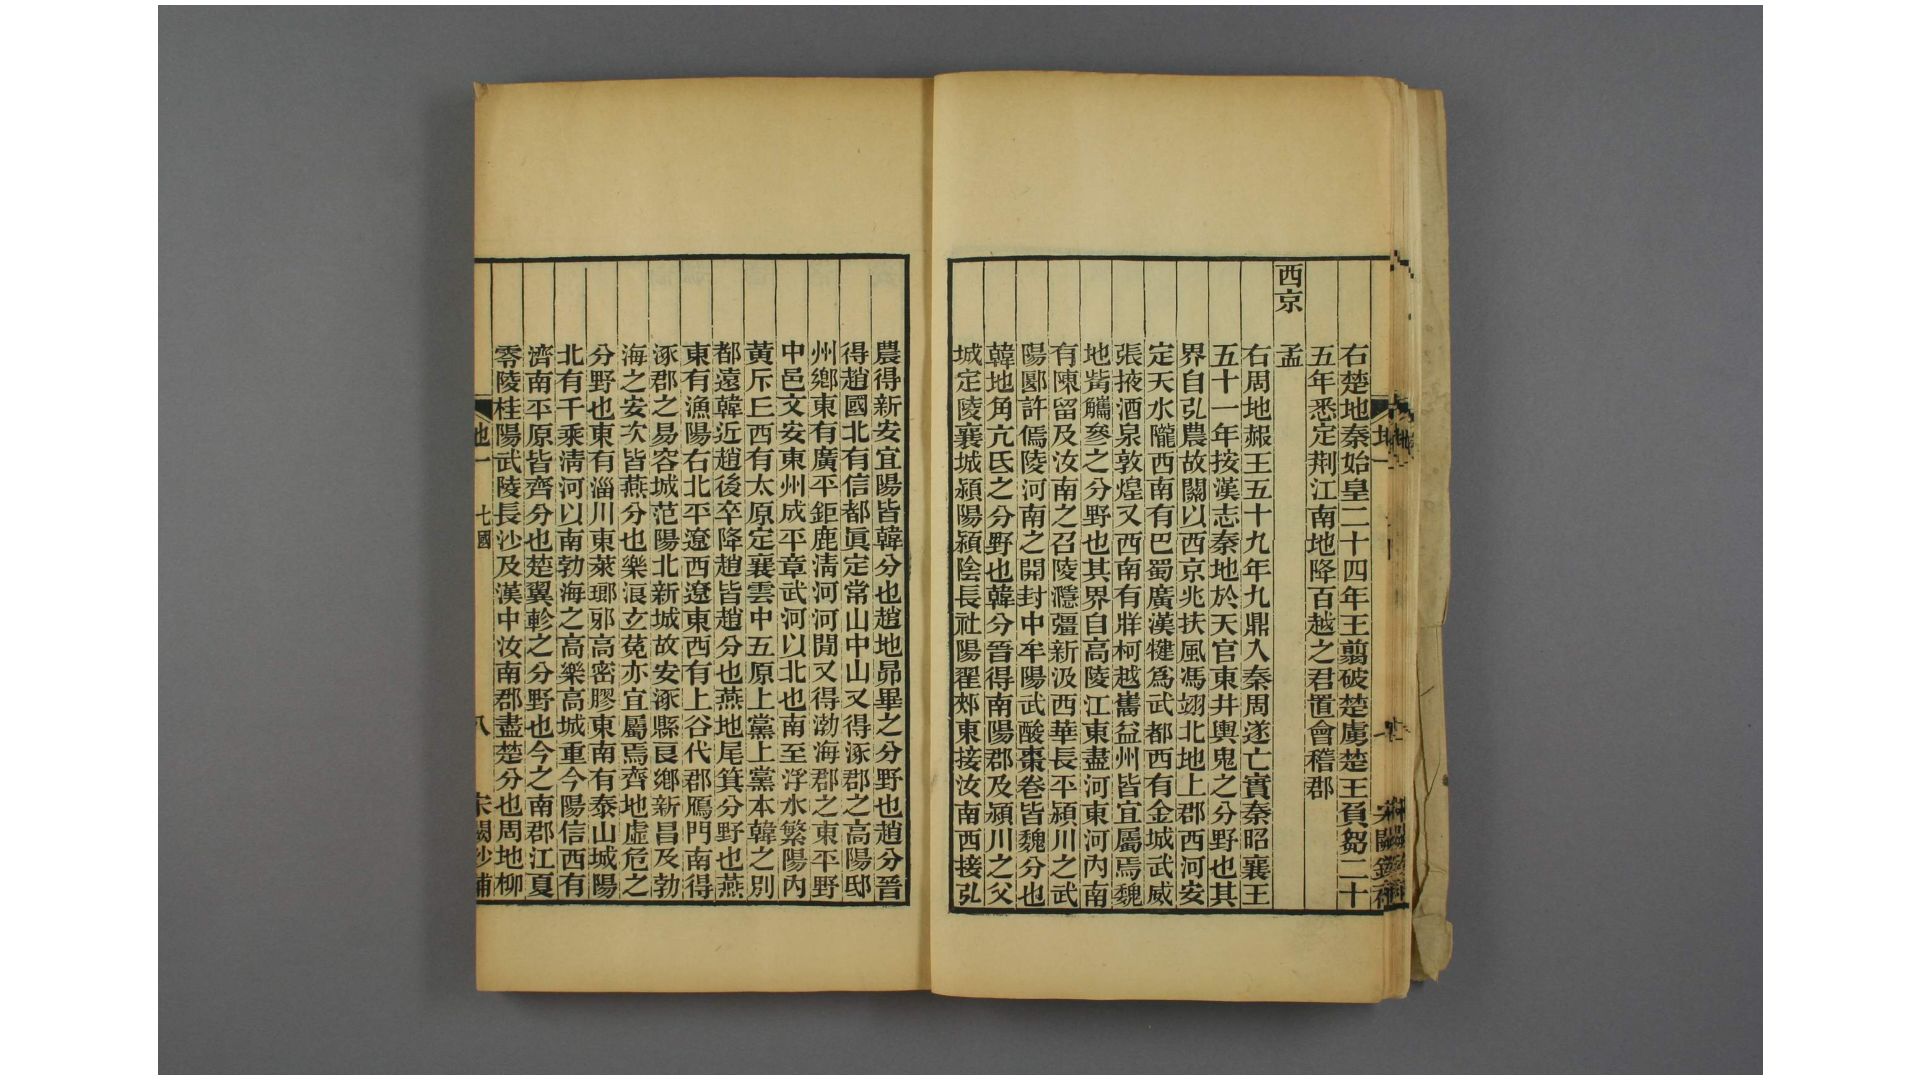 右楚地秦始皇二十四年王翦破楚虜楚王負芻二十
五年悉定荆江南地降百越之君置會稽郡
西京
孟
右周地赧王五十九年九鼎入秦周遂亡實秦昭襄王
五十一年按漢志秦地於天官東井輿鬼之分野也其
界自弘農故關以西京兆扶風馮翊北地上郡西河安
定天水隴西南有巴蜀廣漢犍爲武都西有金城武威
張掖酒泉敦煌又西南有牂柯越巂益州皆宜屬焉魏
地觜觿參之分野也其界自高陵江東盡河東河内南
有陳留及汝南之召陵㶏彊新汲西華長平潁川之武
陽郾許傿陵河南之開封中牟陽武酸棗卷皆魏分也
韓地角亢氐之分野也韓分晉得南陽郡及潁川之父
城定陵襄城潁陽潁陰長社陽翟郟東接汝南西接弘
農得新安宜陽皆韓分也趙地昴畢之分野也趙分晉
得趙國北有信都眞定常山中山又得涿郡之高陽鄚
州鄉東有廣平鉅鹿淸河河間又得渤海郡之東平野
中邑文安東州成平章武河以北也南至浮水繁陽内
黃斥丘西有太原定襄雲中五原上黨上黨本韓之別
都遠韓近趙後卒降趙皆趙分也燕地尾箕分野也燕
東有漁陽右北平遼西遼東西有上谷代郡鴈門南得
涿郡之易容城范陽北新城故安涿縣良鄉新昌及勃
海之安次皆燕分也樂浪玄菟亦宜屬焉齊地虛危之
分野也東有淄川東萊瑯邪高密膠東南有泰山城陽
北有千乘淸河以南勃海之高樂高城重今陽信西有
濟南平原皆齊分也楚翼軫之分野也今之南郡江夏
零陵桂陽武陵長沙及漢中汝南郡盡楚分也周地柳
地一
七國
八
宋闕鈔補